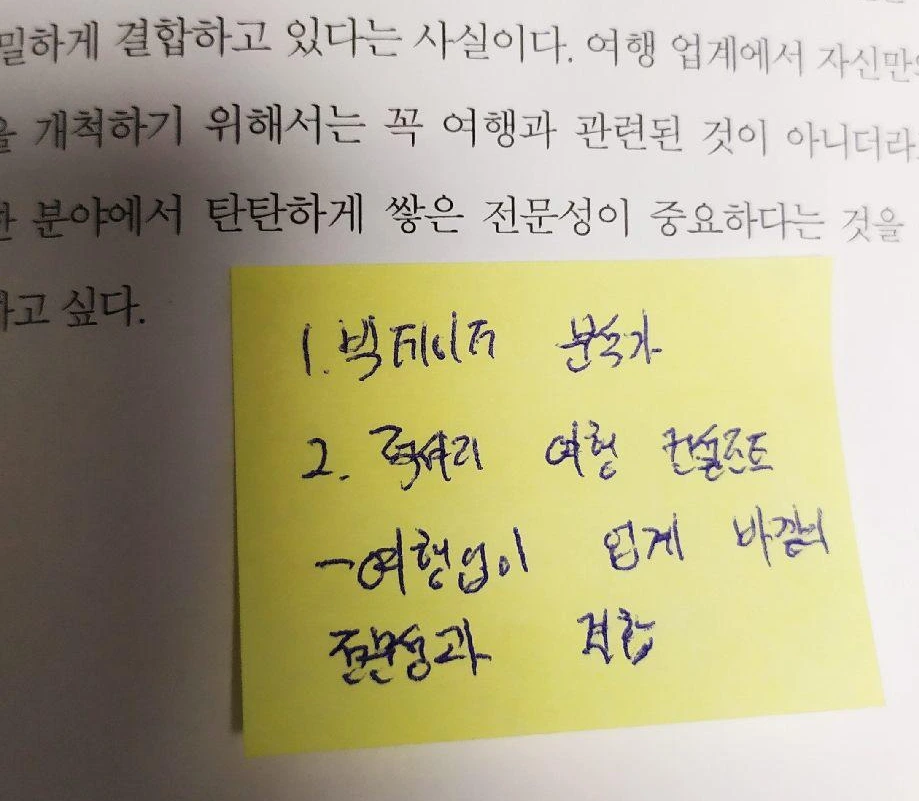 밀하게 결합하고 있다는 사실이다. 여행 업계에서 자신만의
을 개척하기 위해서는 꼭 여행과 관련된 것이 아니더라
한 분야에서 탄탄하게 쌓은 전문성이 중요하다는 것을
하고 싶다.
1. 빅데이터 분석가
2. 럭셔리 여행 컨설턴트
-여행업이 업계 바깥의
전문성과 결합